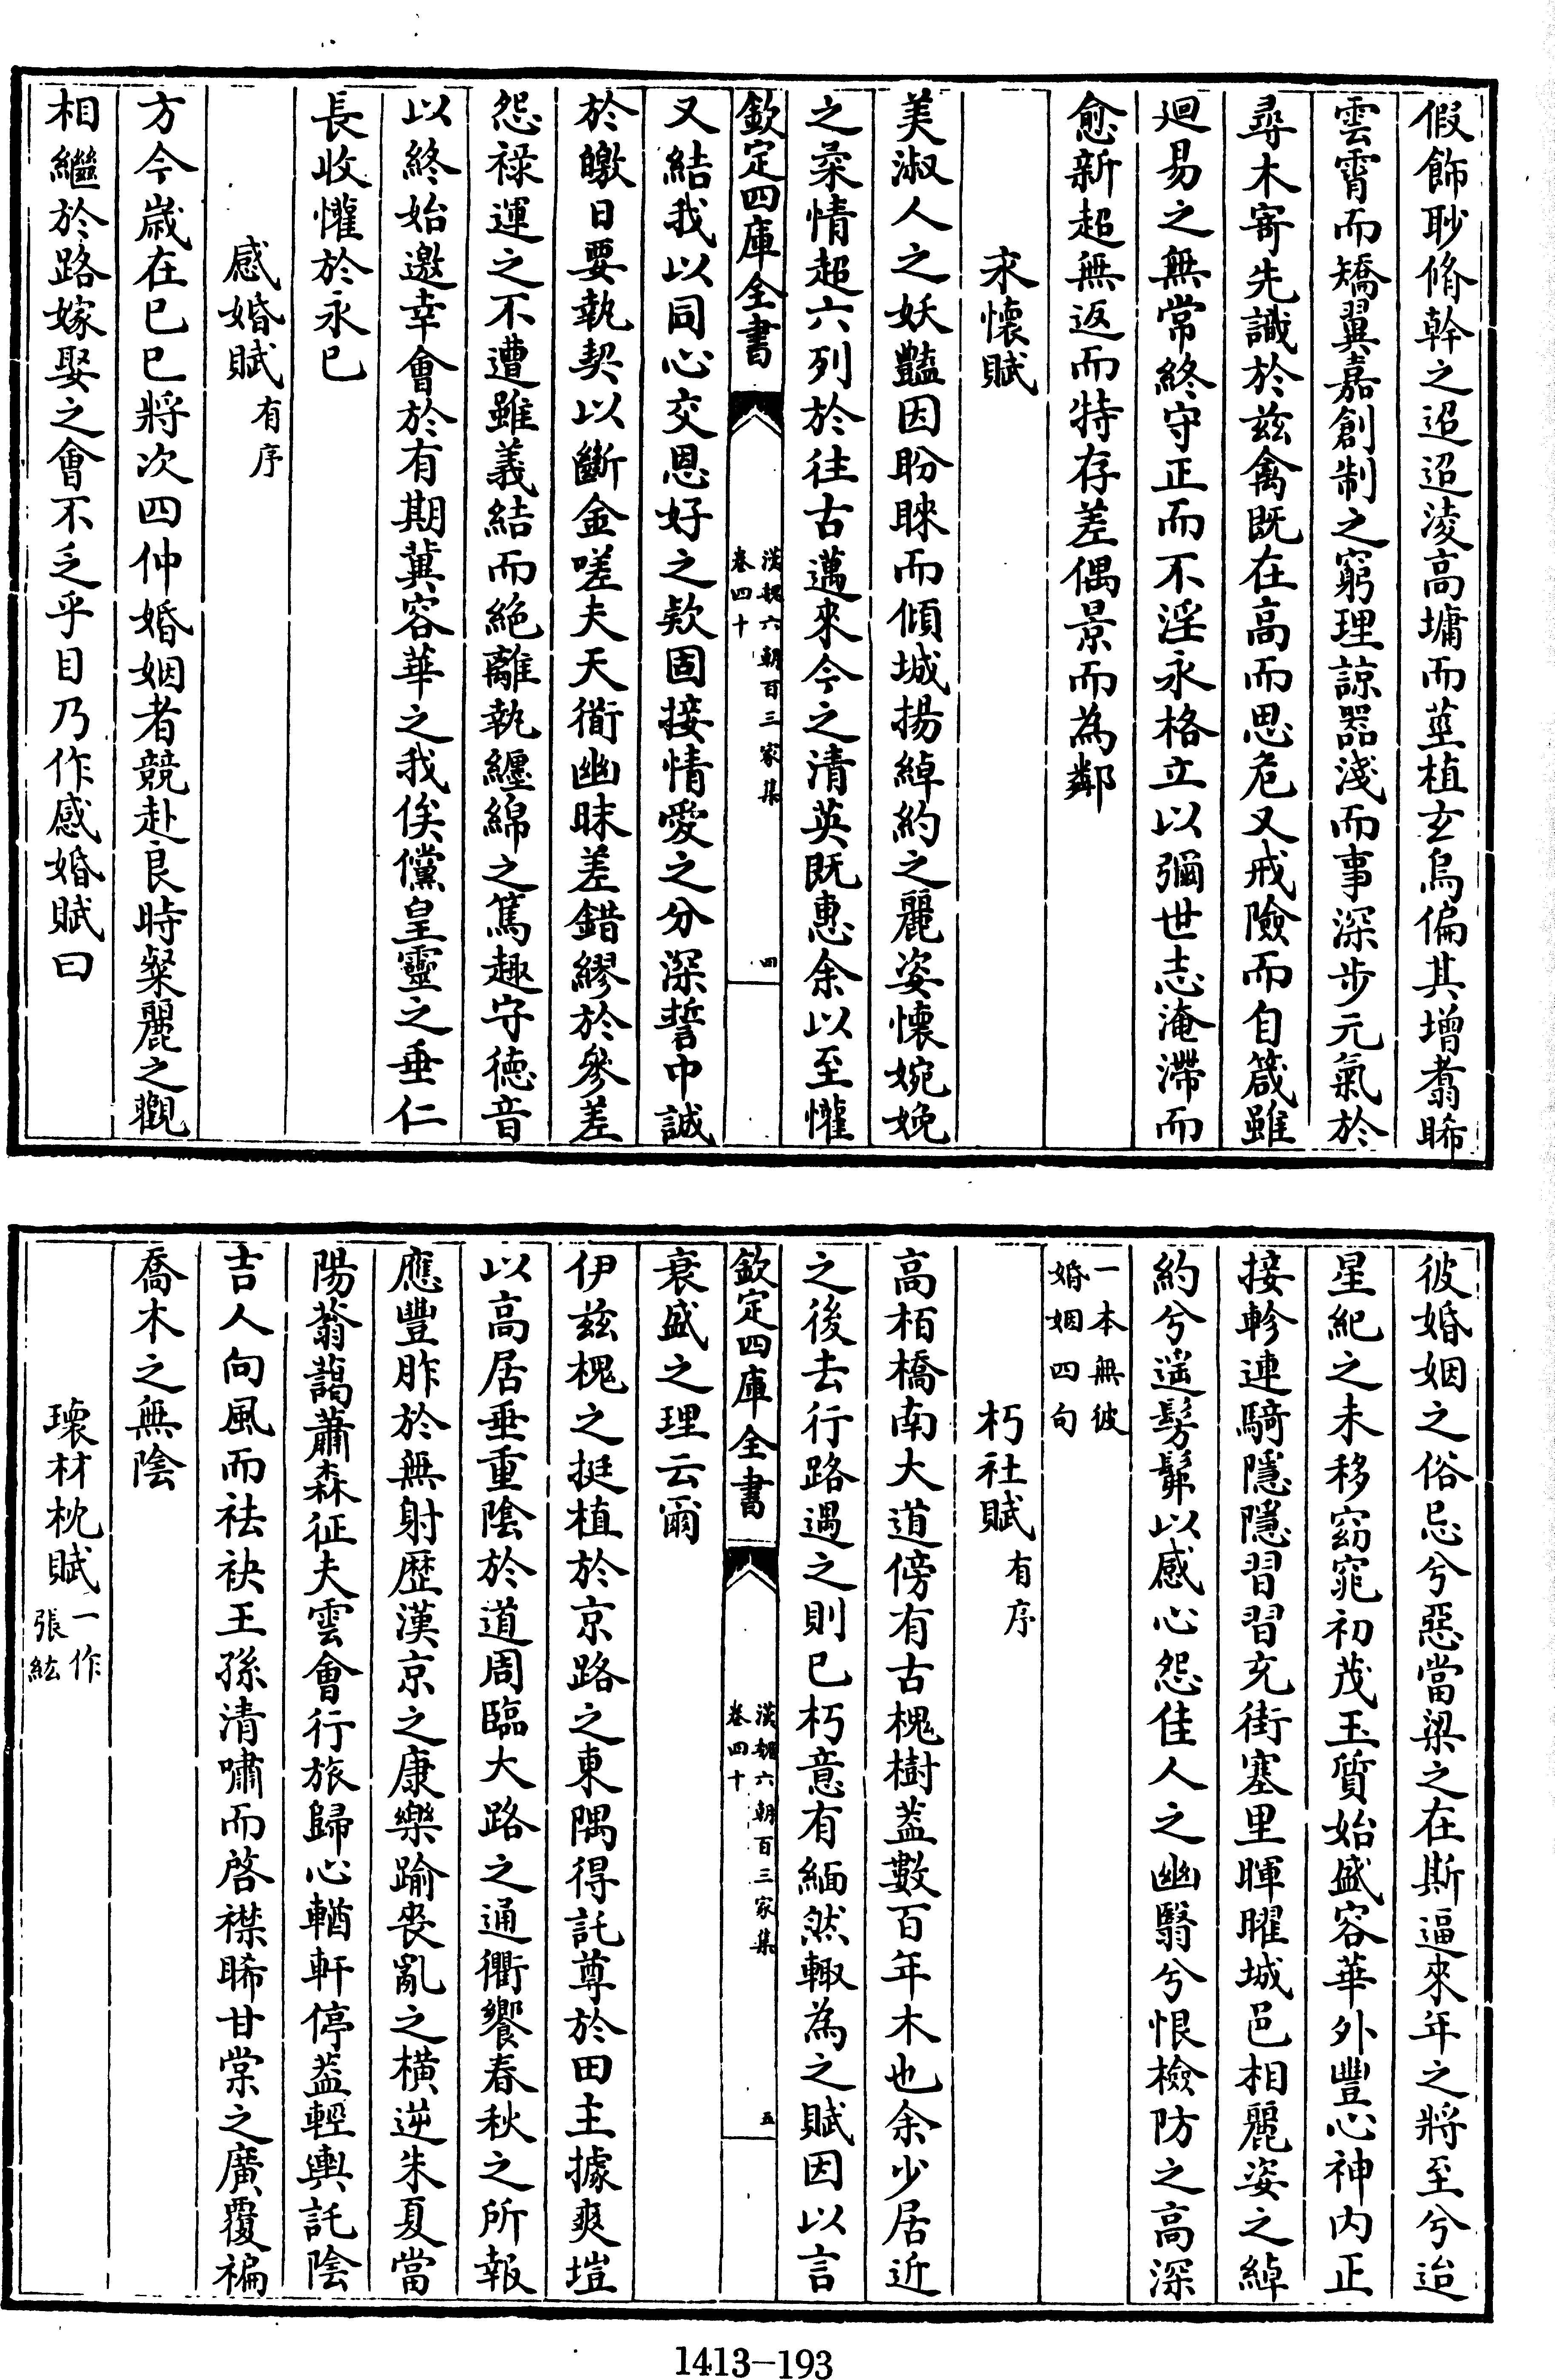 假飾眇脩幹之迢迢淩高墉而莖植玄鳥偏其增翥晞
雲霄而矯翼嘉創制之窮理諒器淺而事深步元氣於
尋木寄先識於兹禽既在高而思危又戒險而自箴雖
迴易之無常終守正而不淫永格立以彌世志淹滯而
愈新超無返而特存差偶景而為鄰
求懷賦
美淑人之妖豔因盼睞而傾城揚綽約之麗姿懷婉娩
之柔情超六列於往古邁來今之清英既惠余以至懽
欽定四庫全書
漢魏六朝百三家集
卷四十
四
又結我以同心交恩好之欵固接情愛之分深誓中誠
於皦日要執契以斷金嗟夫天衜幽昧差錯繆於參差
怨祿運之不遭雖義結而絶離執纏綿之篤趣守德音
以終始邀幸會於有期冀容華之我俟儻皇靈之垂仁
長收懽於永已
感婚賦有序
方今嵗在己巳將次四仲婚姻者競赴良時粲麗之觀
相繼於路嫁娶之會不乏乎目乃作感婚賦曰
彼婚姻之俗忌兮惡當梁之在斯逼來年之將至兮迨
星紀之未移窈窕初茂玉質始盛容華外豐心神内正
接軫連騎隱隱習習充街塞里暉曜城邑相麗姿之綽
約兮遥髣髴以感心怨佳人之幽翳兮恨檢防之高深
一本無彼
婚姻四句
朽社賦有序
高栢橋南大道傍有古槐樹葢數百年木也余少居近
之後去行路遇之則已朽意有緬然輙為之賦因以言
欽定四庫全書
漢魏六朝百三家集
卷四十
五
衰盛之理云爾
伊兹槐之挺植於京路之東隅得託尊於田主據爽塏
以高居垂重陰於道周臨大路之通衢饗春秋之所報
應豐胙於無射歴漢京之康樂踰喪亂之橫逆朱夏當
陽蓊藹蕭森征夫雲會行旅歸心輶軒停葢輕輿託陰
吉人向風而祛袂王孫清嘯而啓襟晞甘棠之廣覆褊
喬木之無陰
瓌材枕賦一作
張紘
1413—193